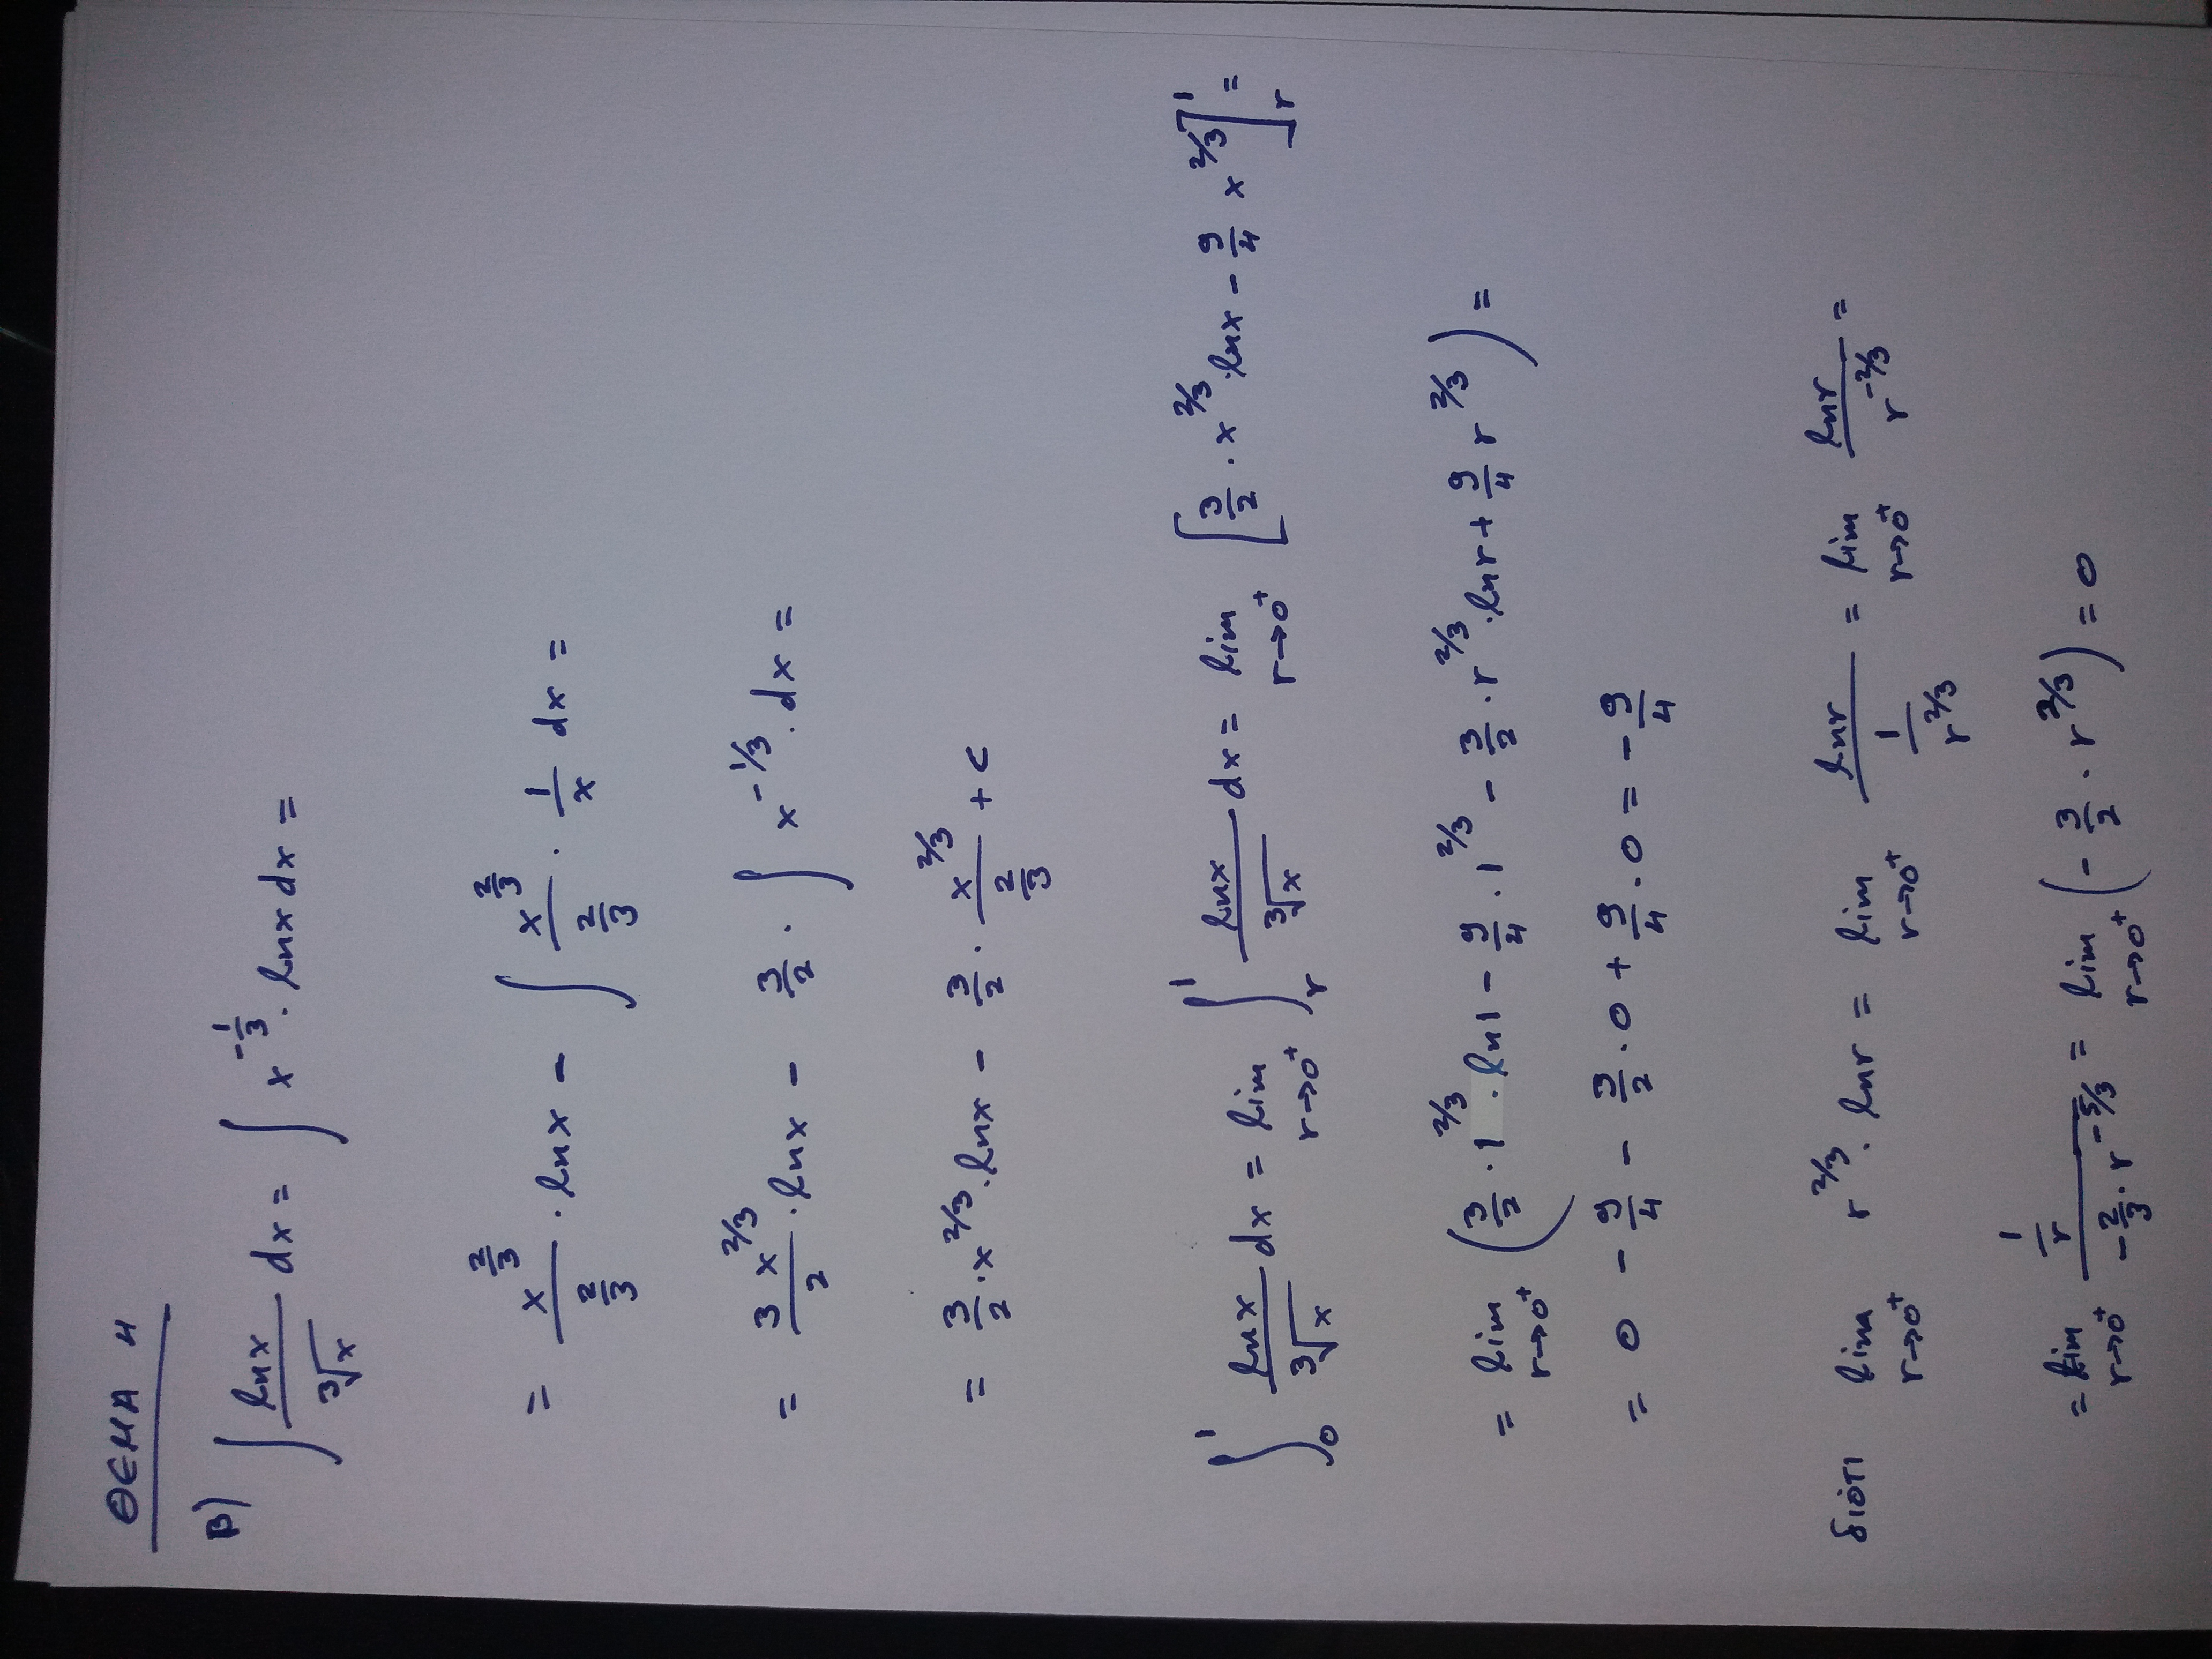 ΘΕΜΑ 4
B) ∫ lnx/∛x dx = ∫ x^(-1/3) · lnx dx =
= x^(2/3)/(2/3) · lnx - ∫ x^(2/3)/(2/3) · 1/x dx =
= 3x^(2/3)/2 · lnx - 3/2 · ∫ x^(-1/3) · dx =
= 3/2 · x^(2/3) · lnx - 3/2 · x^(2/3)/(2/3) + c
∫_0^1 lnx/∛x dx = lim_(r→0⁺) ∫_r^1 lnx/∛x dx = lim_(r→0⁺) [3/2 · x^(2/3) · lnx - 9/4 x^(2/3)]_r^1 =
= lim_(r→0⁺) (3/2 · 1^(2/3) · ln1 - 9/4 · 1^(2/3) - 3/2 · r^(2/3) · lnr + 9/4 r^(2/3)) =
= 0 - 9/4 - 3/2 · 0 + 9/4 · 0 = - 9/4
διότι lim_(r→0⁺) r^(2/3) · lnr = lim_(r→0⁺) lnr/(1/r^(2/3)) = lim_(r→0⁺) lnr/r^(-2/3) =
= lim_(r→0⁺) (1/r)/(-2/3 · r^(-5/3)) = lim_(r→0⁺) (-3/2 · r^(2/3)) = 0